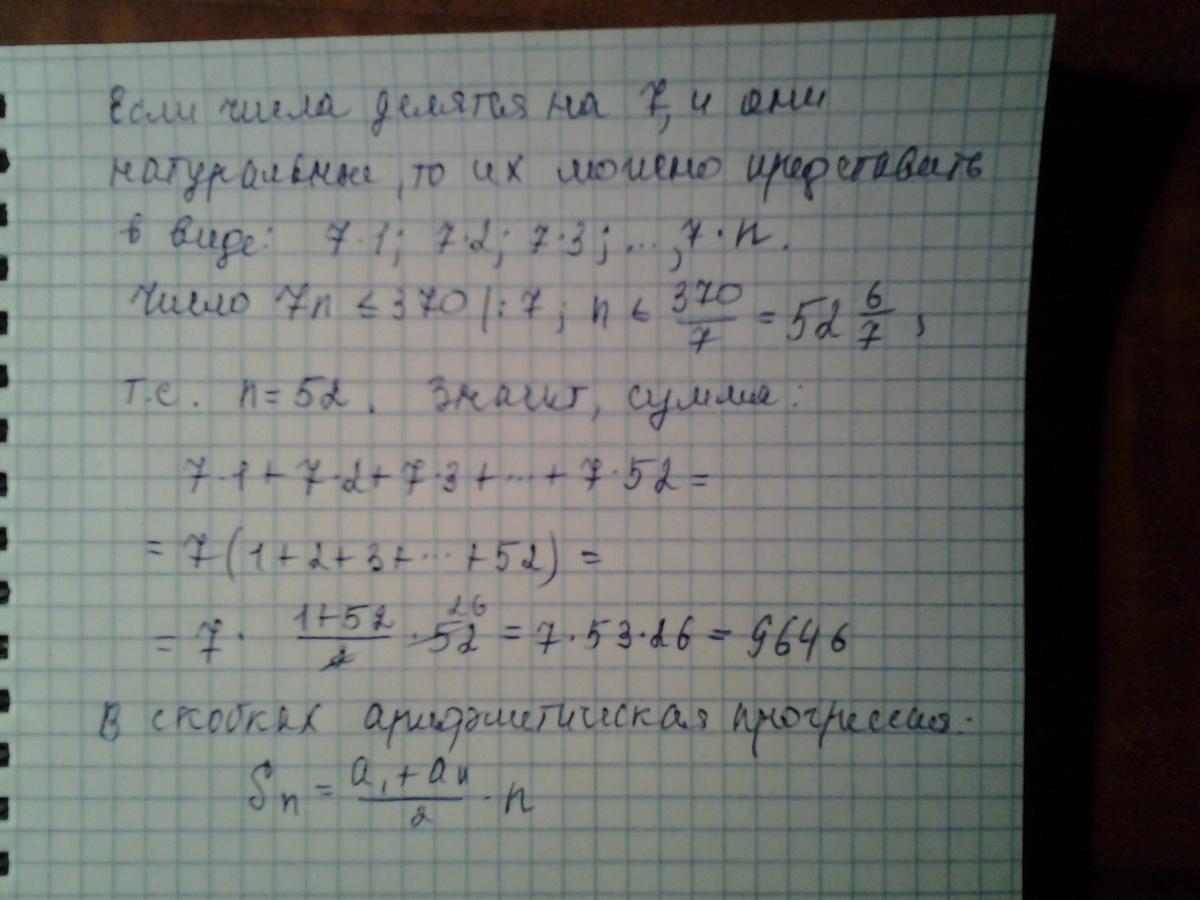 Если числа делятся на 7, и они
натуральные, то их можно представить
в виде: 7·1; 7·2; 7·3; ... , 7·n.
Число 7n ≤ 370 |:7; n ≤ 370/7 = 52 6/7,
т.е. n = 52. Значит, сумма:
7·1 + 7·2 + 7·3 + ... + 7·52 =
= 7(1 + 2 + 3 + ... + 52) =
= 7 · (1+52)/2 · 52 26 = 7·53·26 = 9646
В скобках арифметическая прогрессия.
Sn = (a1 + an)/2 · n